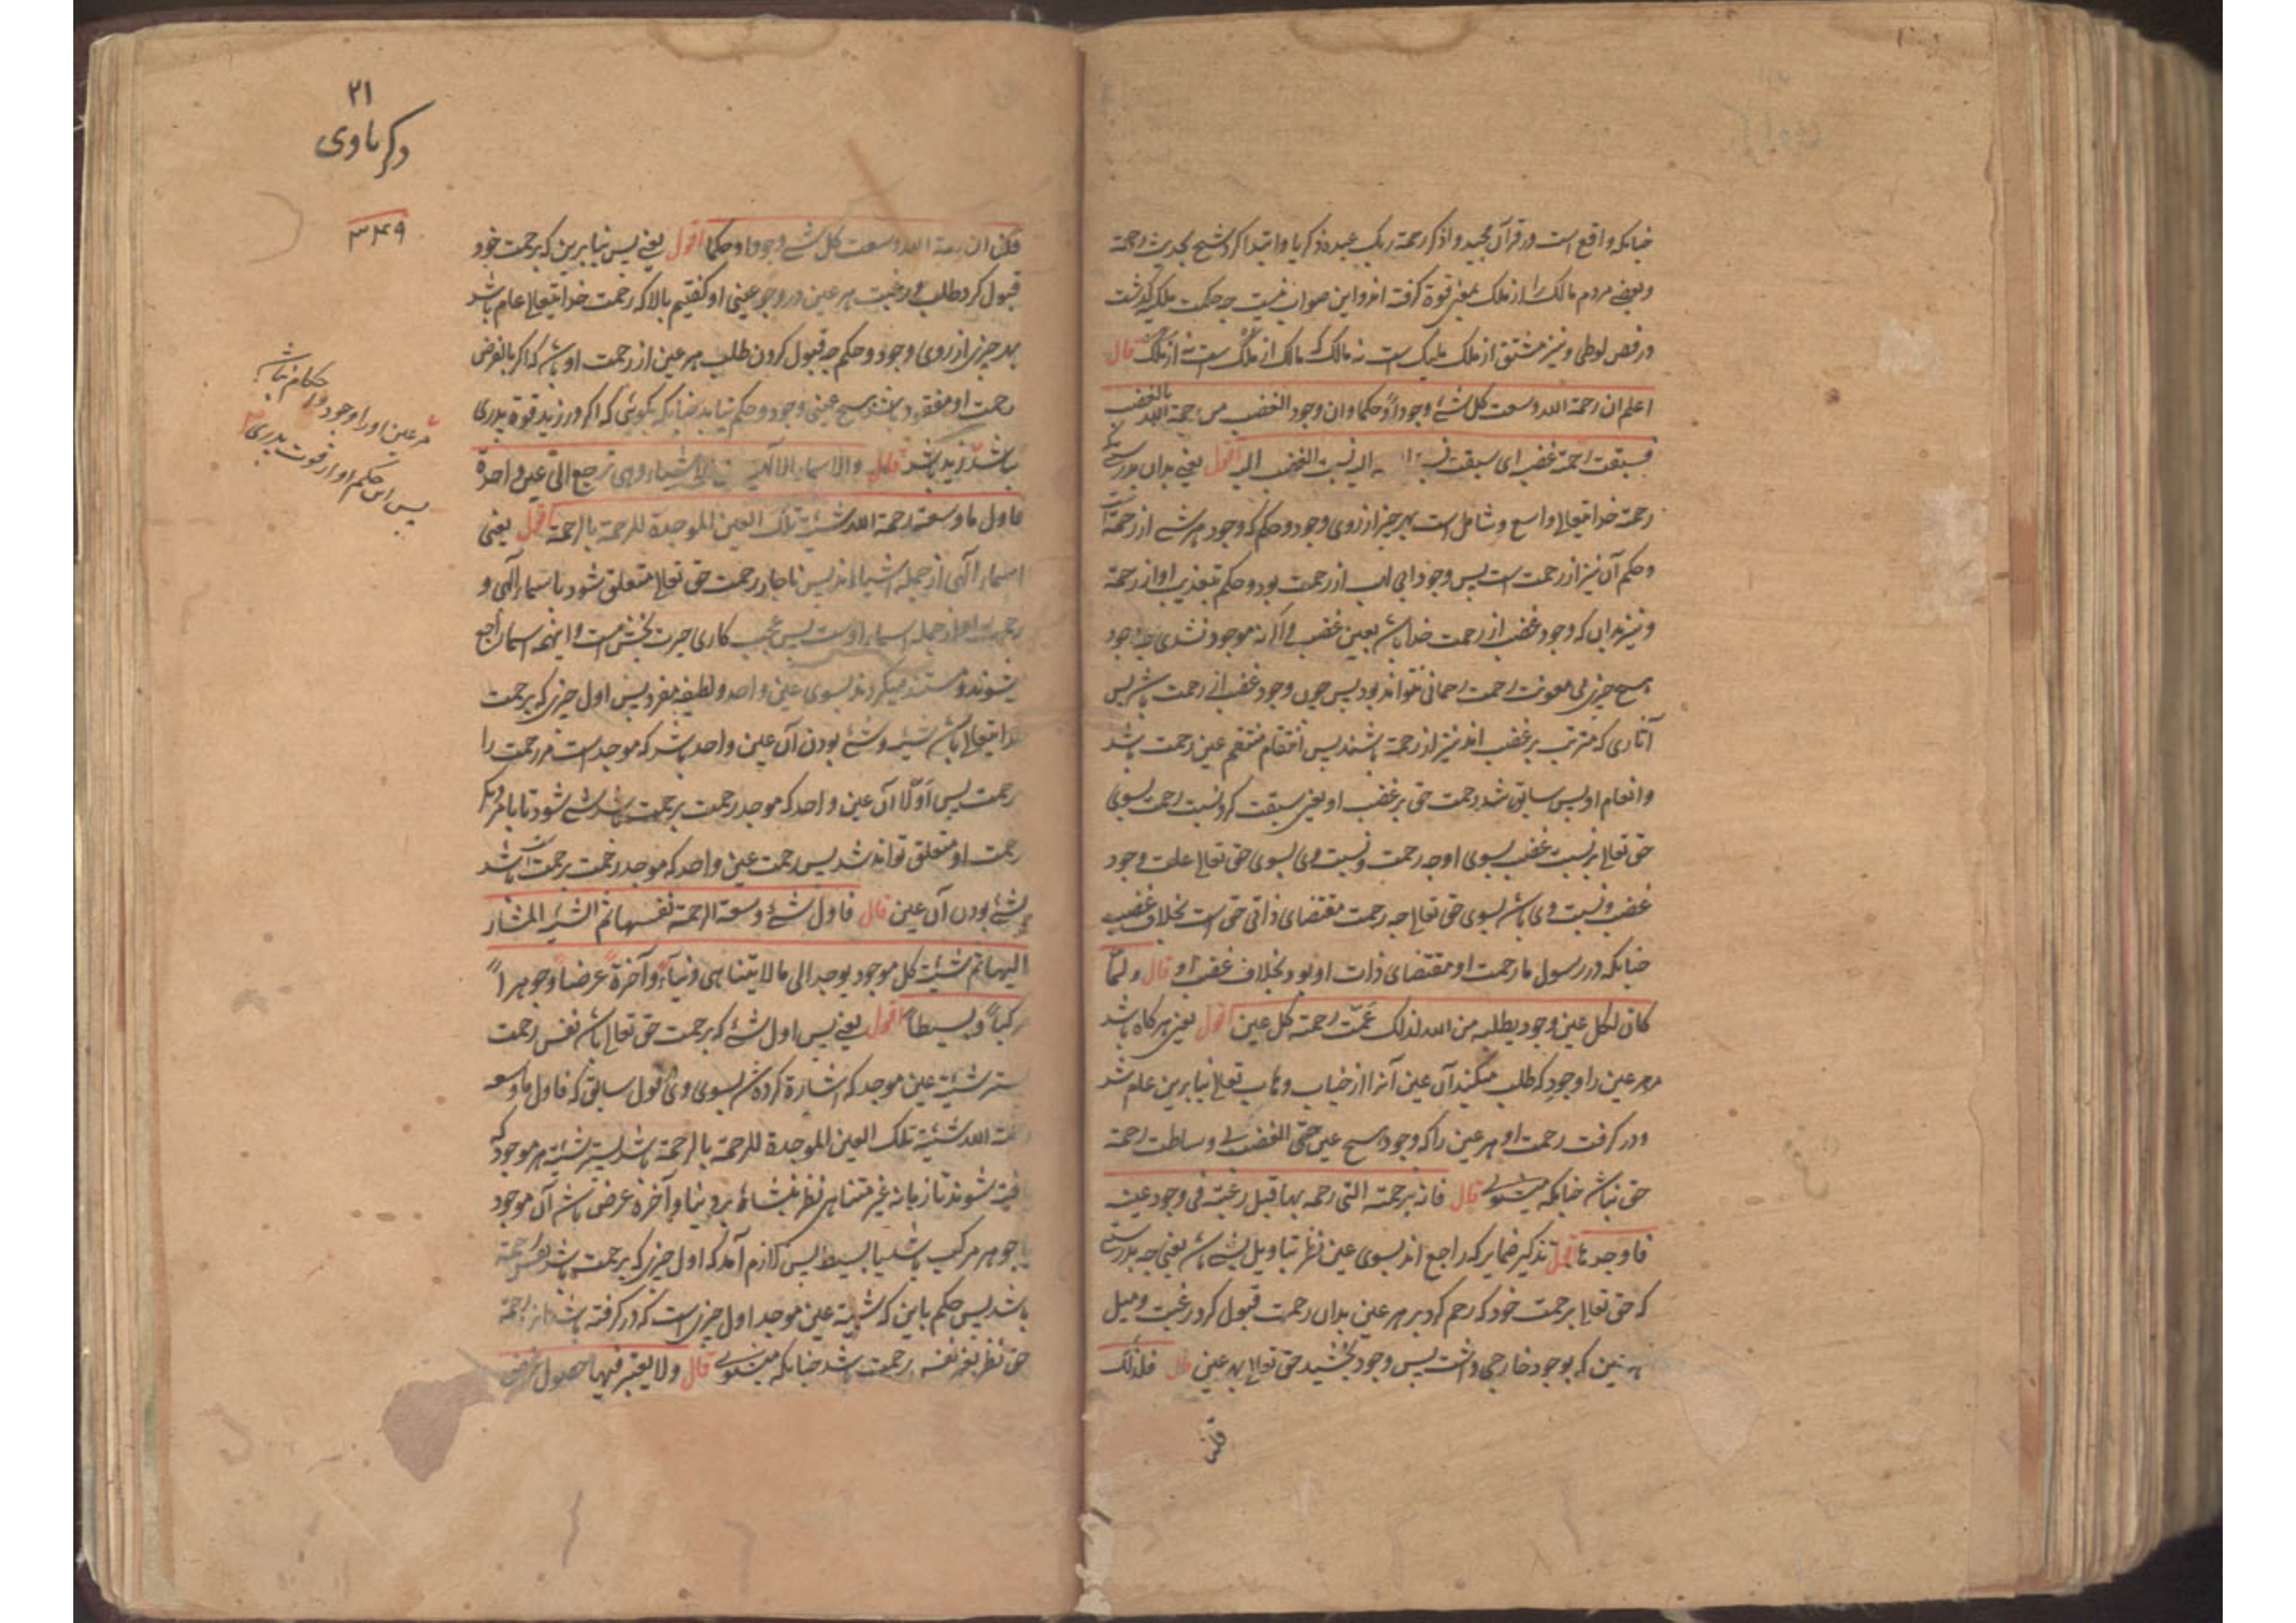 چنانکه واقع است در قرآن مجید و اذکر رحمة ربک عبده ذکریا و ابتدا کرد شیخ بحدیث رحمة
و بعضی مردم مالک را از ملک بمعنی قوة گرفته اند و این صواب نیست چه حکمت ملکیه گذشت
در فص لوطی و نیز مشتق از ملک ملیک است نه مالک که مالک از ملک است نه از ملک قال
اعلم ان رحمة الله وسعت کل شئ وجودا و حکما و ان وجود الغضب من رحمة الله بالغضب
فسبقت رحمته غضبه ای سبقت نسبة الیه نسبت الغضب الیه اقول یعنی بدان بدرستی که
رحمة خدایتعالی واسع و شامل است بهر چیز از روی وجود و حکم که وجود هر شے از رحمة است
و حکم آن نیز از رحمت است پس وجود ابی لهب از رحمت بود و حکم تعذیب او از رحمة
و نیز بدان که وجود غضب از رحمت خدا باشد یعنی غضب و الا نه موجود نشدی چه وجود
هیچ چیز بی معونت رحمت رحمانی نتواند بود پس چون وجود غضب از رحمت باشد پس
آثاری که مترتب بر غضب اند نیز از رحمة باشند پس انتقام منتقم عین رحمت باشد
و انعام او پس سابق شد رحمت حق بر غضب او یعنی سبقت کرد نسبت رحمت بسوی
حق تعالی بر نسبت غضب بسوی او چه رحمت و نسبت وی بسوی حق تعالی علت وجود
غضب و نسبت وی باشد بسوی حق تعالی چه رحمت مقتضای ذاتی حق است بخلاف غضب
چنانکه در رسول ما رحمت او مقتضای ذات او بود بخلاف غضب او قال و لما
کان لکل عین وجود یطلبه من الله لذلک عمّت رحمته کل عین اقول یعنی هرگاه باشد
مر هر عین را وجود که طلب میکند آن عین آنرا از جناب وهاب تعالی بنابرین عام شد
و در گرفت رحمت او هر عین را که وجود هیچ عین حتی الغضب بی وساطت رحمة
حق نباشد چنانکه میگوید قال فانه برحمته التی رحمه بها قبل رغبته فی وجود عینه
فاوجدها اقول تذکیر ضمایر که راجع اند بسوی عین نظر بتاویل شے باشد یعنی چه بدرستی
که حق تعالی برحمت خود که رحم کرد بر هر عین بدان رحمت قبول کرد رغبت و میل
که بوجود خارجی داشت پس وجود بخشید حق تعالی بهر عین قال فلذلک
قلنا
۲۱
ذکریاوی
۳۴۹
قلنا ان رحمة الله وسعت کل شے وجودا و حکما اقول یعنی پس بنابرین که برحمت خود
قبول کرد طلب و رغبت هر عین در وجود عینی او گفتیم بالا که رحمت خدایتعالی عام باشد
بهر چیزی از روی وجود و حکم چه قبول کردن طلب هر عین از رحمت او باشد که اگر بالفرض
رحمت او مفقود باشد هیچ عینی وجود و حکم نیابد چنانکه گوئی که اگر در زید قوة پدری
نباشد زید نباشد قال و الاسماء الالهیه من الاشیاء و هی ترجع الی عین واحدة
فاول ما وسعته رحمة الله شیئیة تلک العین الموجدة للرحمة بالرحمة اقول یعنی
اسماء الهی از جمله اشیااند پس ناچار رحمت حق تعالی متعلق شود باسماء الهی و
رحمت او از جمله اسماء اوست پس عجب کاری حیرت بخش است و اینهمه اسما راجع
میشوند و مستند میگردند بسوی عین واحد و لطیفه مفرد پس اول چیزی که برحمت
خدایتعالی باشد شیئیت و شئ بودن آن عین واحد باشد که موجد است مر رحمت را
برحمت پس اوّلا آن عین واحد که موجد رحمت برحمت باشد شے شود تا بامر دیگر
رحمت او متعلق تواند شد پس رحمت عین واحد که موجد رحمت برحمت است باشد
بشئ بودن آن عین قال فاول شئ وسعته الرحمة نفسها ثم الشیئیة المشار
الیها ثم شیئیة کل موجود یوجد الی ما لا یتناهی دنیا و آخرة عرضا و جوهرا
مرکبا و بسیطا اقول یعنی پس اول شئ که برحمت حق تعالی باشد نفس رحمت
پستر شیئیت عین موجد که اشارة کرده شد بسوی وی بقول سابق که فاول ما وسعه
رحمة الله شیئیة تلک العین الموجدة للرحمة بالرحمة باشد پستر شیئیة هر موجود که
یافته شوند تا زمانه غیر متناهی نظر بنشاة دنیا و آخرة عرض باشد آن موجود
یا جوهر مرکب باشد یا بسیط پس لازم آمد که اول چیزی که برحمت باشد نفس رحمة
باشد پس حکم باین که شیئیة عین موجد اول چیزی است که در گرفته باشد از رحمة
حق نظر بغیر نفس رحمت باشد چنانکه میگوید قال و لا یعتبر فیها حصول غرض
هر عین او را وجود و احکام نباشد
پس این حکم او از قوت پدری